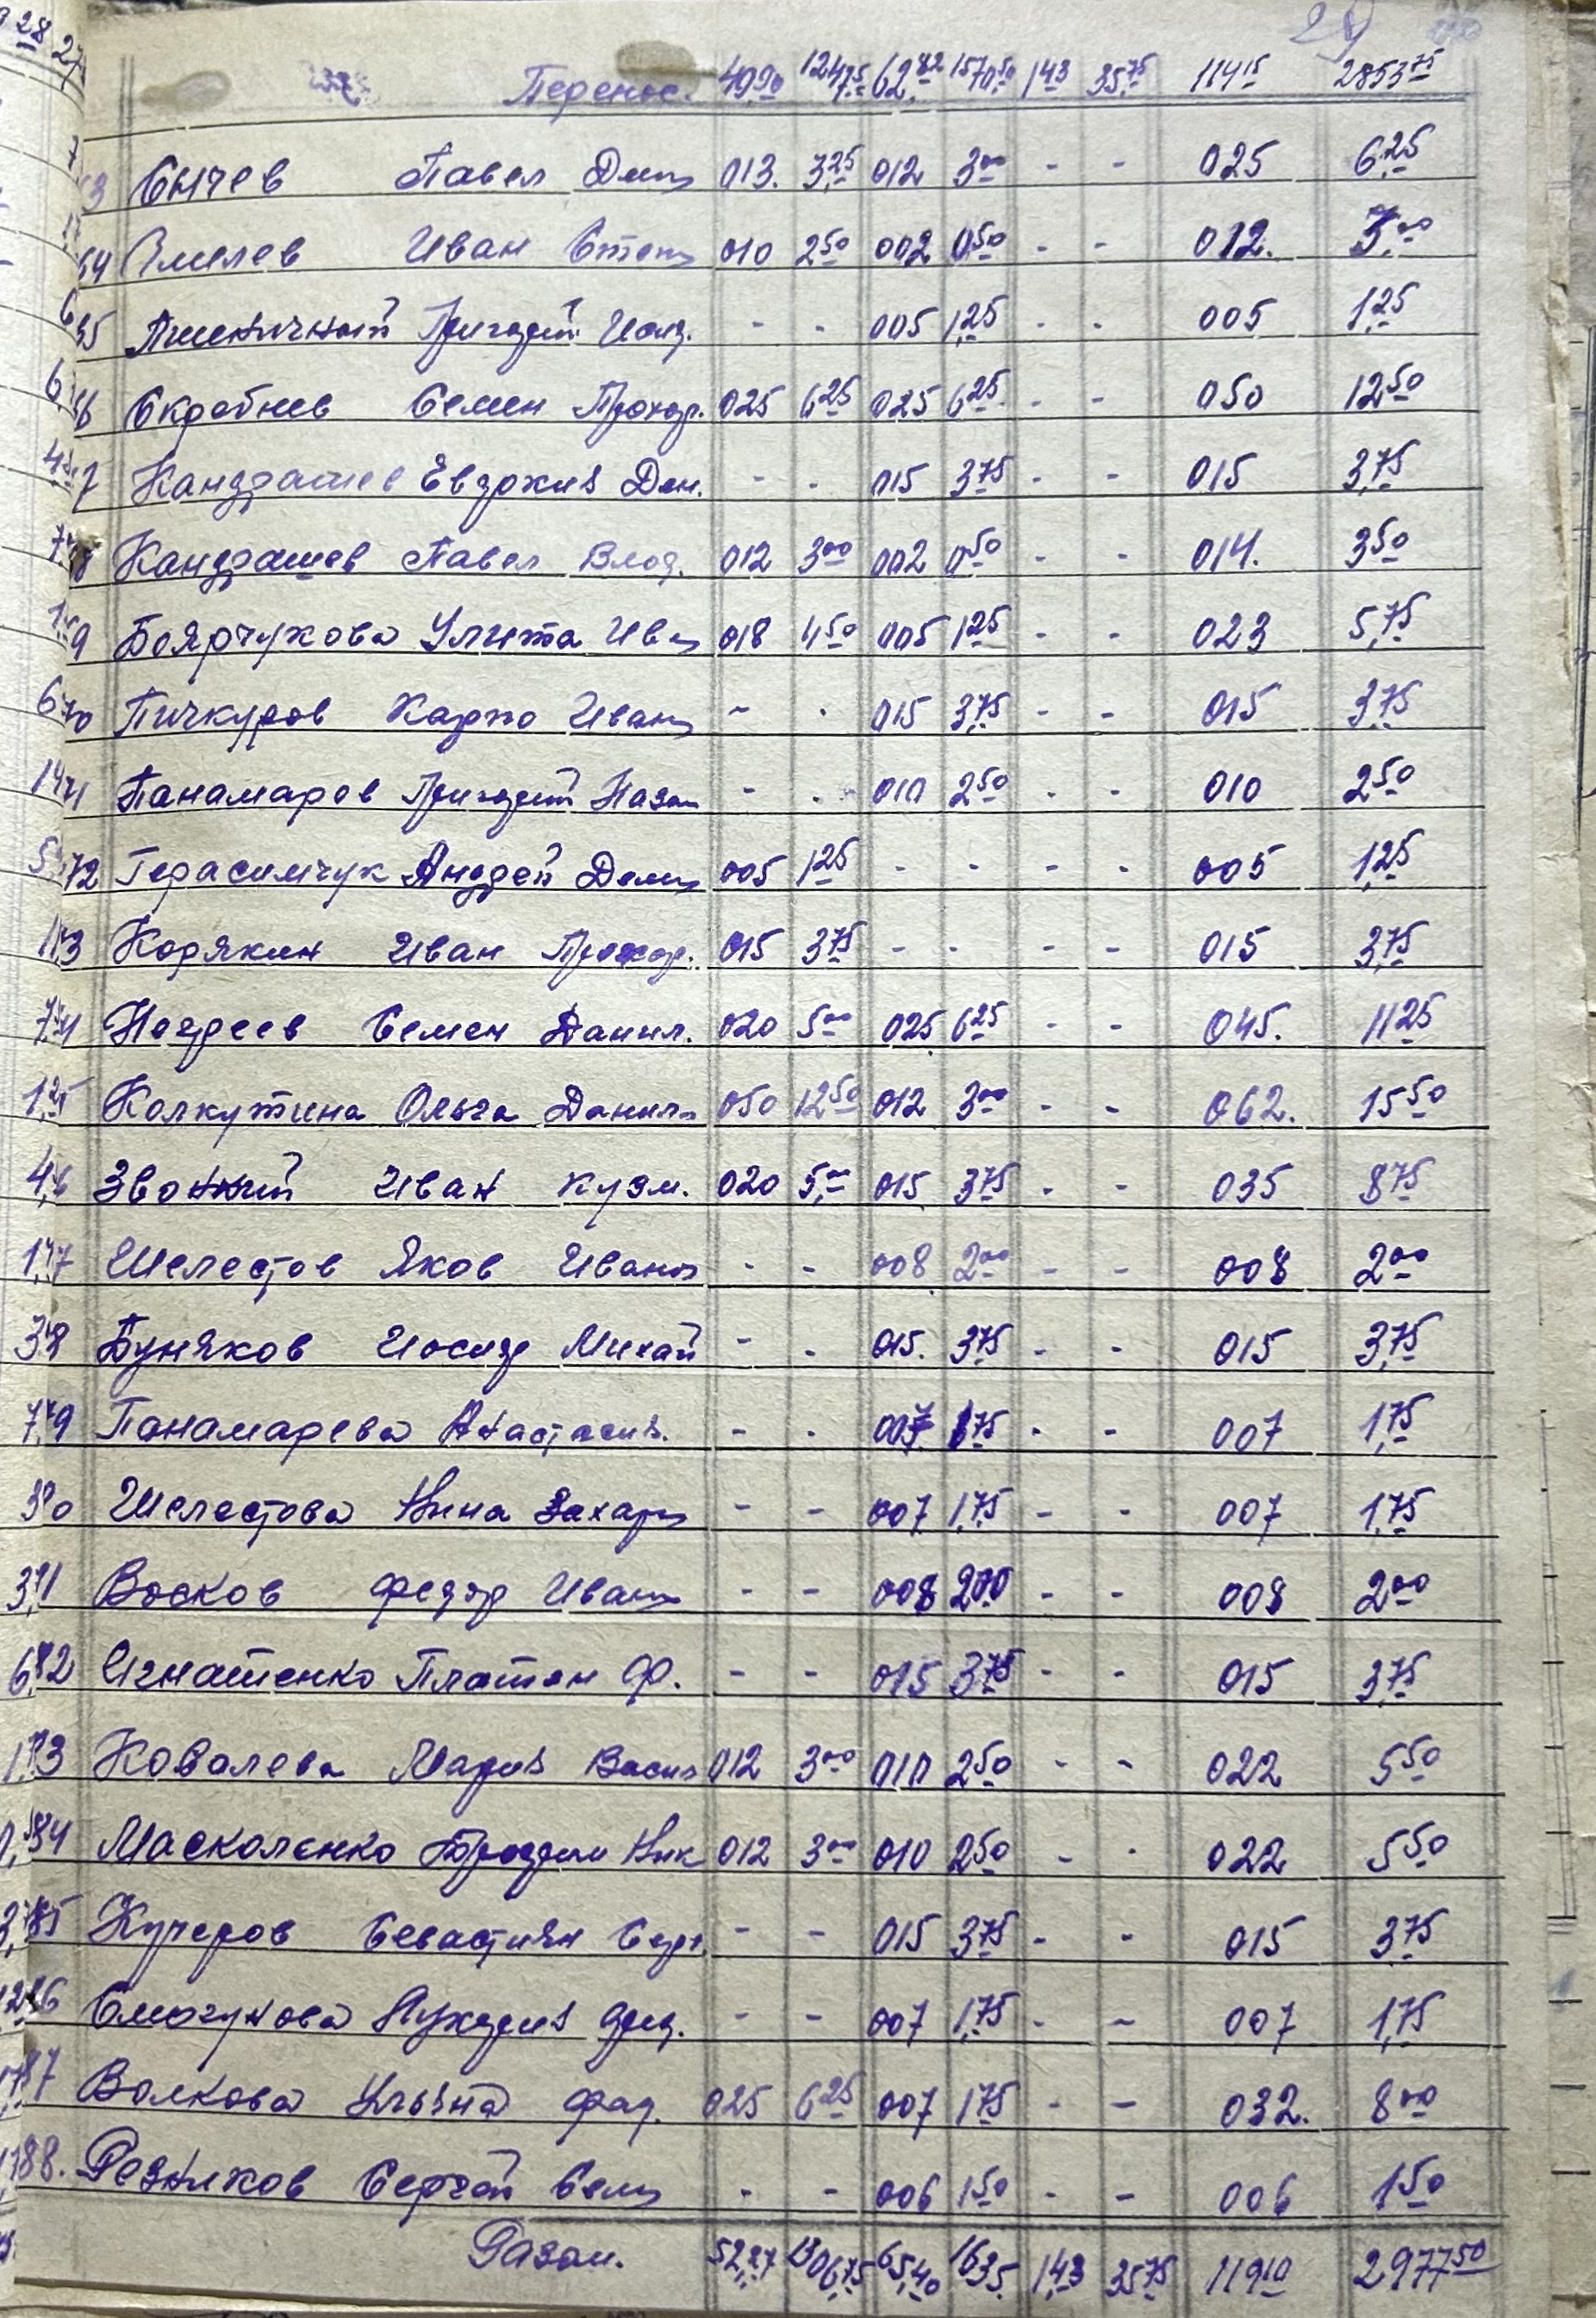 29
Перенос. 49,90 1247,25 62,82 1570,50 143 35,75 114 15 2853 75
Сычев Павел Дмит 013. 3,25 012 3 00 - - 025 6,25
64 Иван Степ 010 2 50 002 0,50 - - 012. 3,00
65 Пшеничный Григорій Иоид. - - 005 1,25 - - 005 1,25
66 Скробнев Семен Прохор. 025 6 25 025 6 25 - - 050 12 50
7 Кандрашев Евдокия Дон. - - 015 3 75 - - 015 3,75
8 Кандрашев Павел Влод. 012 3 00 002 0 50 - - 014. 3 50
9 Боярчукова Улита Ив 018 4 50 005 1 25 - - 023 5,75
70 Пичкуров Карпо Иван - - 015 3,75 - - 015 3,75
71 Панамаров Григорий Назар - - 010 2 50 - - 010 2 50
72 Герасимчук Андрей Деми 005 1 25 - - - - 005 1,25
73 Корякин Иван Прохор. 015 3 75 - - - - 015 3,75
74 Ногдреев Семен Данил. 020 5 00 025 6 25 - - 045. 11 25
75 Колкутина Ольга Данил 050 12 50 012 3 00 - - 062. 15 50
76 Звонкий Иван Кузм. 020 5,00 015 3 75 - - 035 8 75
77 Шелестов Яков Иван - - 008 2 00 - - 008 2 00
78 Буняков Иосиф Михай - - 015. 3 75 - - 015 3,75
79 Панамарева Анастасия. - - 007 1 75 - - 007 1,75
80 Шелестова Нина Захар - - 007 1,75 - - 007 1,75
81 Восков Федор Иван - - 008 200 - - 008 2 00
82 Игнатенко Платон Ф. - - 015 3 75 - - 015 3,75
83 Ковалева Мария Васил 012 3 00 010 2 50 - - 022 5 50
84 Масколенко Ник 012 3 00 010 2 50 - - 022 5 50
85 Кучеров Севастиян Серг. - - 015 3 75 - - 015 3 75
86 Смогунова - - 007 1,75 - - 007 1,75
87 Волкова Ульяна Фад. 025 6 25 007 1 75 - - 032. 8 00
88. Резников Сергей Семи - - 006 1 50 - - 006 1 50
Разом. 52,27 1306,75 65,40 1635. 1,43 35 75 119 10 2977 50